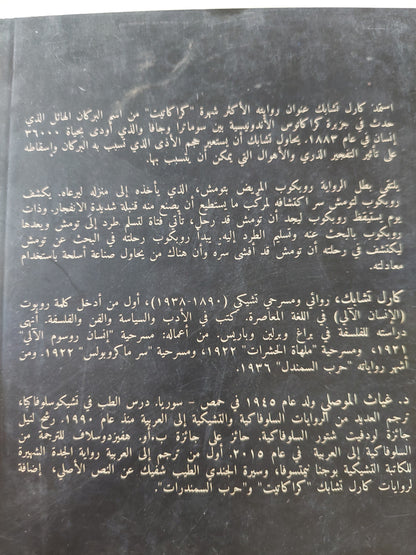 استمد كارل تشابك عنوان روايته الأكثر شهرة "كراكاتيت" من اسم البركان الهائل الذي
حدث في جزيرة كراكاتوس الأندونيسية بين سوماترا وجافا والذي أودى بحياة ٣٦٠٠٠
إنسان في عام ١٨٨٣. يحاول تشابك أن يستعير حجم الأذى الذي تسبب به البركان وإسقاطه
على تأثير التفجير الذري والأهوال التي يمكن أن يتسبب بها.
يلتقي بطل الرواية روبكوب المريض بتومش، الذي يأخذه إلى منزله ليرعاه. يكشف
روبكوب لتومش سر اكتشافه لمركب ما يستطيع أن يصنع منه قنبلة شديدة الانفجار. وذات
يوم يستيقظ روبكوب ليجد أن تومش قد رحل، تأتي فتاة لتسلم طرد إلى تومش وبعدها
روبكوب بالبحث عنه وتسليم الطرد إليه. يبدأ روبكوب رحلته في البحث عن تومش
ليكتشف في رحلته أن تومش قد أفشى سره وأن هناك من يحاول صناعة أسلحة باستخدام
معادلته.
كارل تشابك، روائي ومسرحي تشيكي (١٨٩٠-١٩٣٨)، أول من أدخل كلمة روبوت
(الإنسان الآلي) في اللغة المعاصرة. كتب في الأدب والسياسة والفن والفلسفة. أنهى
دراسته للفلسفة في براغ وبرلين وباريس. من أعماله: مسرحية "إنسان روسوم الآلي"
١٩٢١، ومسرحية "ملهاة الحشرات" ١٩٢٢، ومسرحية "سر ماكروبولس" ١٩٢٢. ومن
أشهر رواياته "حرب السمندل" ١٩٣٦.
د. غياث الموصلي ولد عام ١٩٤٥ في حمص - سوريا. درس الطب في تشيكوسلوفاكيا،
ترجم العديد من الروايات السلوفاكية والتشيكية إلى العربية منذ عام ١٩٩٠. رشح لنيل
جائزة لودفيت شتور السلوفاكية. حائز على جائزة ب.أو. هفيزدوسلاف للترجمة من
السلوفاكية إلى العربية في عام ٢٠١٥. أول من ترجم إلى العربية رواية الجدة الشهيرة
للكاتبة التشيكية بوجنا نيمتسوفا، وسيرة الجندي الطيب شفيك عن النص الأصلي، إضافة
لروايات كارل تشابك "كراكاتيت" و"حرب السمندرات".